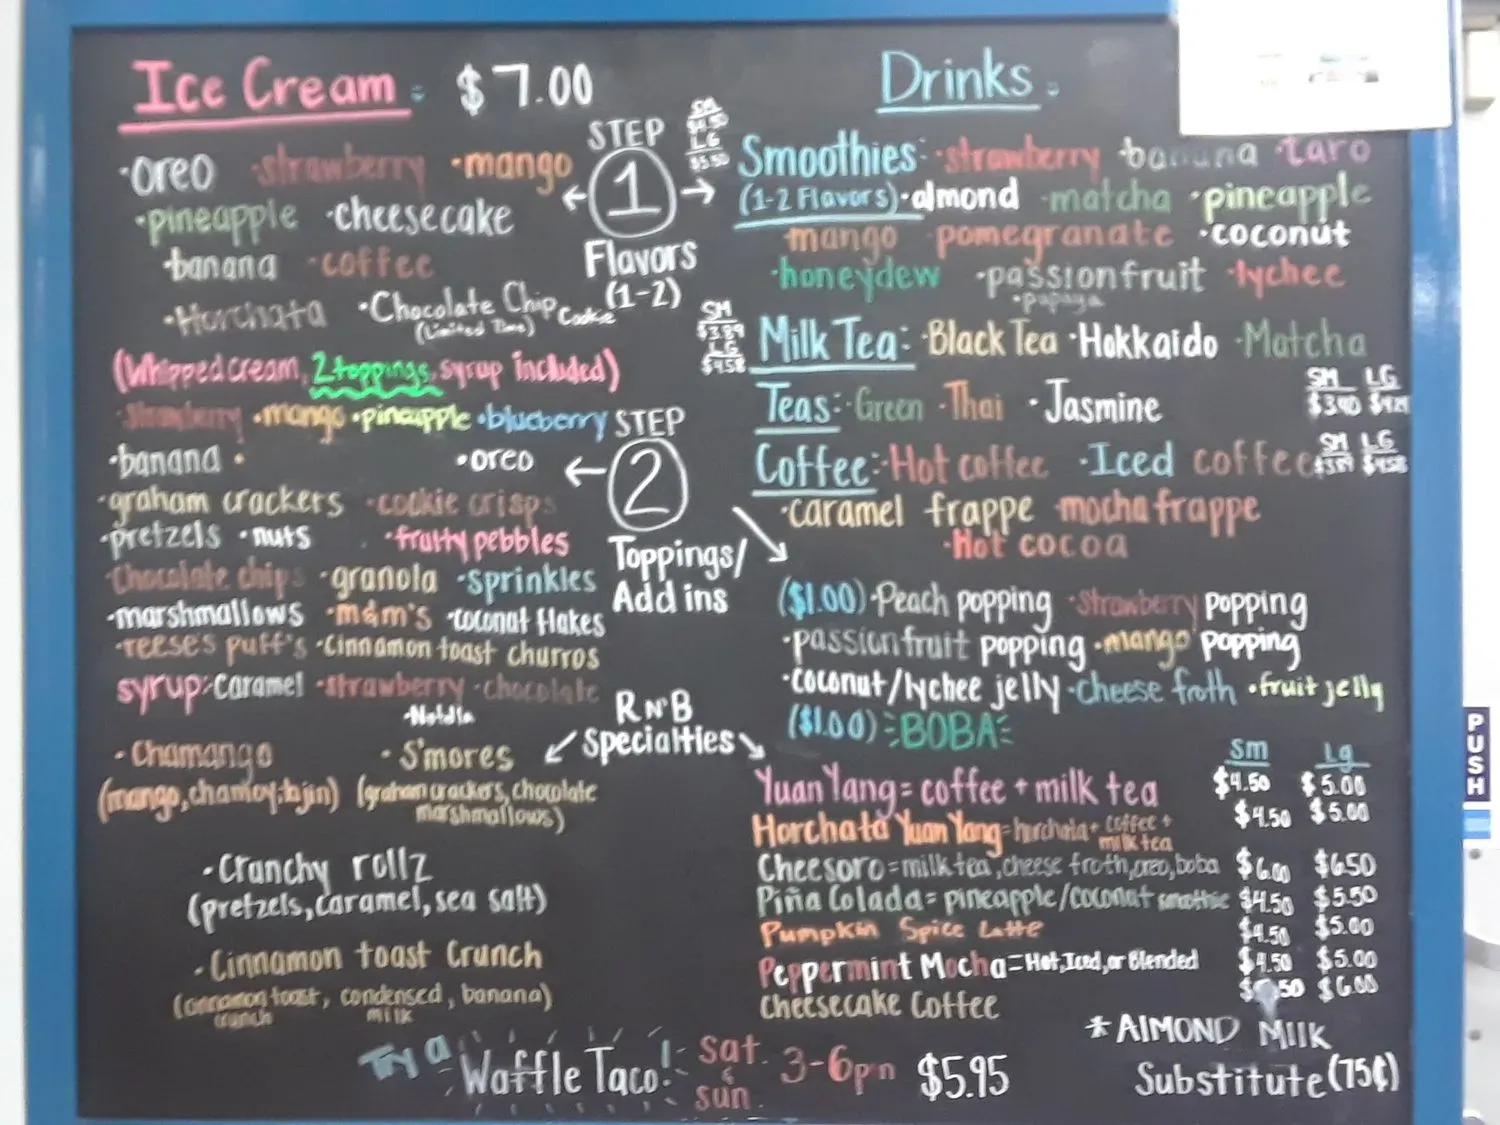 Ice Cream: $7.00
·oreo ·strawberry ·mango
·pineapple ·cheesecake
·banana ·coffee
·Horchata ·Chocolate Chip Cookie
(Limited Time)
(Whipped cream, 2 toppings, syrup included)
STEP
1
Flavors
(1-2)
·strawberry ·mango ·pineapple ·blueberry
·banana · ·oreo
·graham crackers ·cookie crisps
·pretzels ·nuts ·fruity pebbles
·Chocolate chips ·granola ·sprinkles
·marshmallows ·m&m's ·coconut flakes
·reese's puff's ·cinnamon toast churros
syrup: caramel ·strawberry ·chocolate
·Nutella
STEP
2
Toppings/
Add ins
R N' B
Specialties
·Chamango
(mango, chamoy, tajin)
·S'mores
(graham crackers, chocolate
marshmallows)
·Crunchy rollz
(pretzels, caramel, sea salt)
·Cinnamon toast Crunch
(cinnamon toast crunch, condensed milk, banana)
Drinks:
SM
$4.50
LG
$5.50
Smoothies: ·strawberry ·banana ·taro
(1-2 Flavors) ·almond ·matcha ·pineapple
mango pomegranate ·coconut
·honeydew ·passionfruit ·lychee
·papaya
SM
$3.89
LG
$4.58
Milk Tea: ·Black Tea ·Hokkaido ·Matcha
Teas: ·Green ·Thai ·Jasmine
SM LG
Coffee: ·Hot coffee ·Iced coffee
SM LG
·caramel frappe mocha frappe
·Hot cocoa
($1.00) ·Peach popping ·strawberry popping
·passionfruit popping ·mango popping
·coconut/lychee jelly ·cheese froth ·fruit jelly
($1.00) BOBA
Sm Lg
Yuan Yang = coffee + milk tea $4.50 $5.00
Horchata Yuan Yang = horchata + coffee + milk tea $4.50 $5.00
Cheesoro = milk tea, cheese froth, oreo, boba $6.00 $6.50
Piña Colada = pineapple/coconut smoothie $4.50 $5.50
Pumpkin Spice Latte $4.50 $5.00
Peppermint Mocha = Hot, Iced, or Blended $4.50 $5.00
Cheesecake Coffee $6.00
*Almond Milk
Substitute (75¢)
Try a Waffle Taco! Sat & Sun. 3-6pm $5.95
PUSH